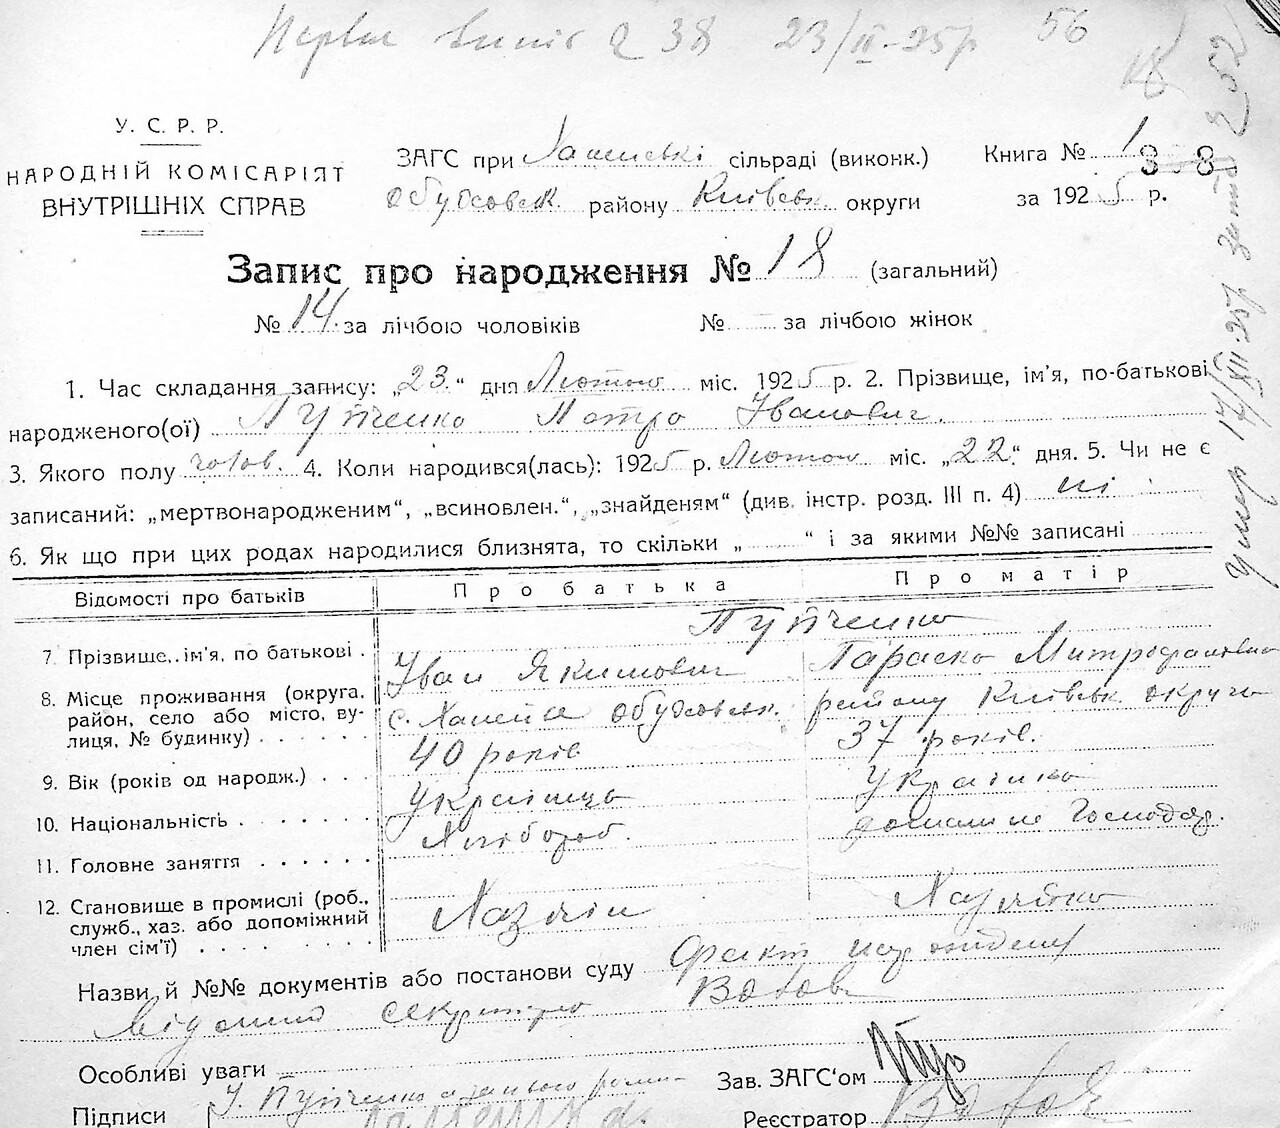 Первич випис ч 38 23/II-25р 56
У. С. Р. Р.
НАРОДНІЙ КОМІСАРІЯТ
ВНУТРІШНІХ СПРАВ
ЗАГС при сільраді (виконк.)
Обуховськ. району Київськ. округи
Книга № 1
38
за 1925 р.
Запис про народження № 18 (загальний)
№ 14. за лічбою чоловіків № — за лічбою жінок
1. Час складання запису: „23.“ дня Лютого міс. 1925 р. 2. Прізвище, ім'я, по-батькові
народженого(ої) Пупченко Петро Іванович.
3. Якого полу чолов. 4. Коли народився(лась): 1925 р. Лютого міс. „22.“ дня. 5. Чи не є
записаний: „мертвонародженим“, „всиновлен.“, „знайденям“ (див. інстр. розд. III п. 4) ні
6. Як що при цих родах народилися близнята, то скільки „ “ і за якими №№ записані
Відомості про батьків Про батька Про матір
Пупченко
7. Прізвище, ім'я, по батькові . Іван Якимович Параска Митрофановна
8. Місце проживання (округа, с. Обуховськ. району Київськ округи
район, село або місто, ву-
лиця, № будинку) . . . . .
9. Вік (років од народж.) . . . 40 років 37 років.
10. Національність . . . . . . . Українець Українка
11. Головне заняття . . . . . . Хлібороб. домашнє Господар.
12. Становище в промислі (роб., Хазяїн Хазяйка
служб., хаз. або допоміжний
член сім'ї) . . . . . . . . .
Назви й №№ документів або постанови суду Факт народження
відомий секретарю
Особливі уваги
Підписи І. Пупченко
Зав. ЗАГС'ом
Реєстратор
Умер 17/XII-25р Запис ч 52